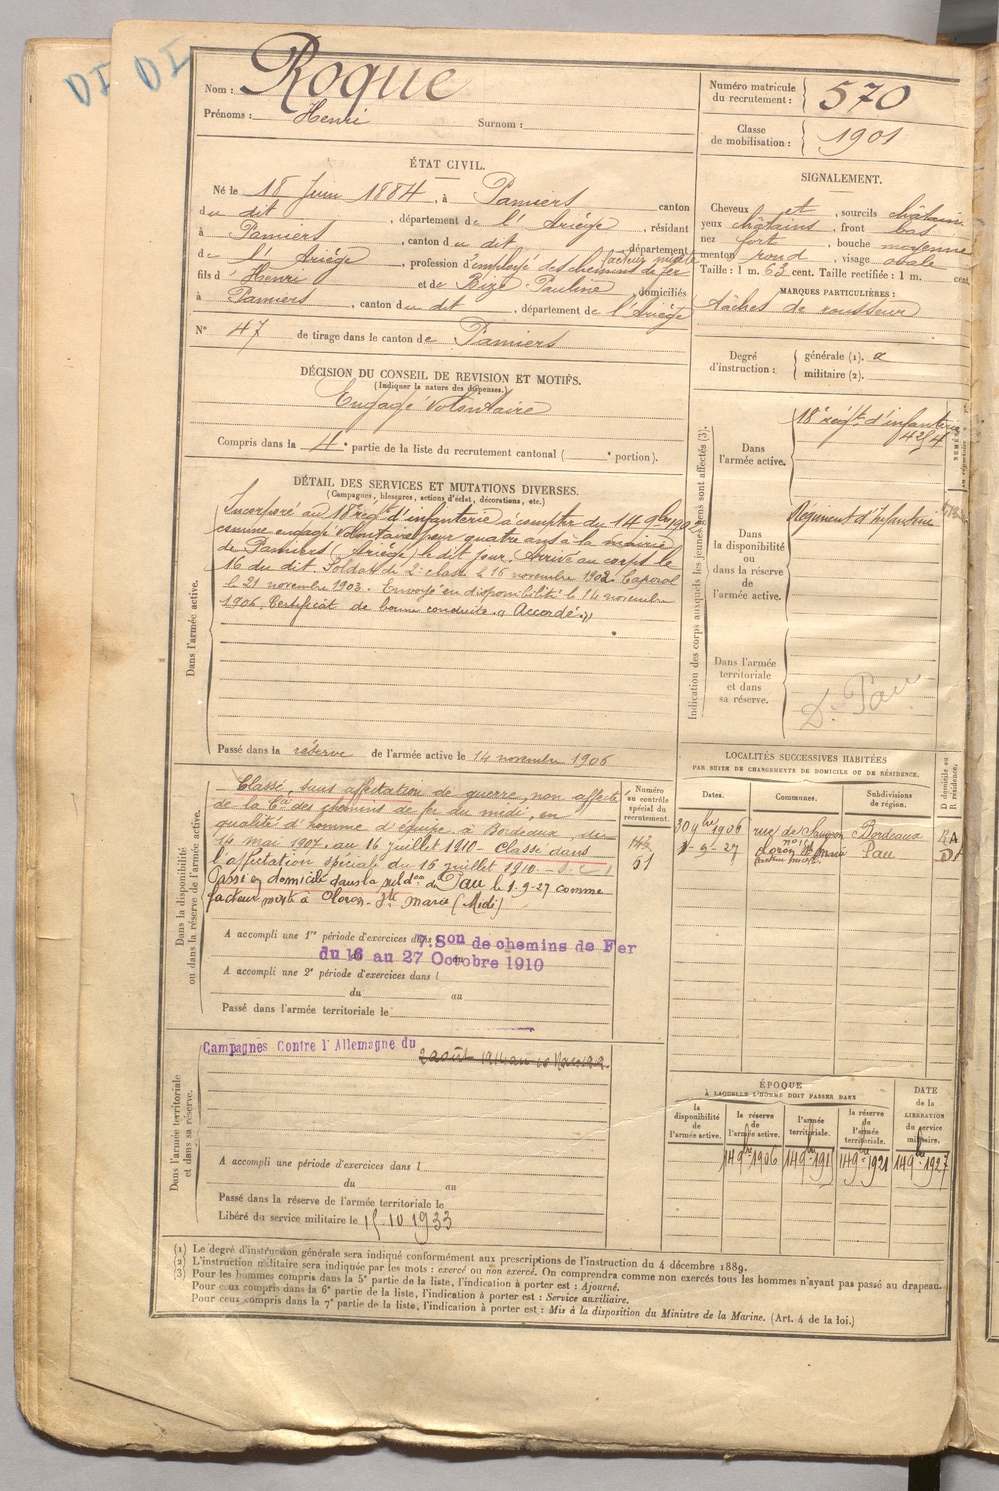 DI DI
Nom : Roque
Prénoms : Henri Surnom :
Numéro matricule du recrutement : 570
Classe de mobilisation : 1901
ÉTAT CIVIL.
Né le 18 Juin 1884, à Pamiers canton
du dit, département de l'Ariège, résidant
à Pamiers, canton du dit, département
de l'Ariège, profession d'employé des chemins de fer facteur mixte
fils d' Henri et de Bize Pauline, domiciliés
à Pamiers, canton du dit, département de l'Ariège
N° 47 de tirage dans le canton de Pamiers
SIGNALEMENT.
Cheveux et, sourcils châtains
yeux châtains, front bas
nez fort, bouche moyenne
menton rond, visage ovale
Taille : 1 m. 63 cent. Taille rectifiée : 1 m. cent.
MARQUES PARTICULIÈRES :
tâches de rousseur
Degré d'instruction : générale (1). a
militaire (2).
DÉCISION DU CONSEIL DE REVISION ET MOTIFS.
(Indiquer la nature des dispenses.)
Engagé Volontaire
Compris dans la 4e partie de la liste du recrutement cantonal ( e portion).
DÉTAIL DES SERVICES ET MUTATIONS DIVERSES.
(Campagnes, blessures, actions d'éclat, décorations, etc.)
Dans l'armée active.
Incorporé au 18e régt d'infanterie à compter du 14 9bre 1902
comme engagé volontaire pour quatre ans à la mairie
de Pamiers (Ariège) le dit jour. Arrivé au corps le
16 du dit. Soldat de 2e classe le 16 novembre 1902. Caporal
le 21 novembre 1903. Envoyé en disponibilité le 14 novembre
1906. Certificat de bonne conduite "Accordé"
Passé dans la réserve de l'armée active le 14 novembre 1906
Indication des corps auxquels les jeunes gens sont affectés (3).
Dans l'armée active.
18e régt d'infanterie
Dans la disponibilité ou dans la réserve de l'armée active.
Régiment d'Infanterie
Dans l'armée territoriale et dans sa réserve.
D. Pau
Dans la disponibilité ou dans la réserve de l'armée active.
Classé, sans affectation de guerre, non affecté
de la Cie des chemins de fer du midi, en
qualité d'homme d'équipe à Bordeaux, du
14 mai 1907 au 16 juillet 1910 - Classé dans
l'affectation spéciale du 16 juillet 1910
Passé en domicile dans la subdon de Pau le 1-9-27 comme
facteur mixte à Oloron-Ste Marie (Midi)
Numéro au contrôle spécial du recrutement.
51
A accompli une 1re période d'exercices dans 7. Son de chemins de Fer
du 16 au 27 Octobre 1910
A accompli une 2e période d'exercices dans l
du au
Passé dans l'armée territoriale le
LOCALITÉS SUCCESSIVES HABITÉES
PAR SUITE DE CHANGEMENTS DE DOMICILE OU DE RÉSIDENCE.
Dates. Communes. Subdivisions de région. D domicile ou R résidence.
30 9bre 1906 rue de Saugeon Bordeaux R
1-9-27 Oloron Ste Marie Pau D
facteur mixte
Dans l'armée territoriale et dans sa réserve.
Campagnes Contre l'Allemagne du
A accompli une période d'exercices dans l
du au
Passé dans la réserve de l'armée territoriale le
Libéré du service militaire le 15.10 1933
ÉPOQUE
À LAQUELLE L'HOMME DOIT PASSER DANS
la disponibilité de l'armée active.
la réserve de l'armée active.
l'armée territoriale.
la réserve de l'armée territoriale.
DATE de la LIBÉRATION du service militaire.
14 9bre 1906 14 9bre 191 14 9bre 1921 14 9bre 1927
(1) Le degré d'instruction générale sera indiqué conformément aux prescriptions de l'instruction du 4 décembre 1889.
(2) L'instruction militaire sera indiquée par les mots : exercé ou non exercé. On comprendra comme non exercés tous les hommes n'ayant pas passé au drapeau.
(3) Pour les hommes compris dans la 5e partie de la liste, l'indication à porter est : Ajourné.
Pour ceux compris dans la 6e partie de la liste, l'indication à porter est : Service auxiliaire.
Pour ceux compris dans la 7e partie de la liste, l'indication à porter est : Mis à la disposition du Ministre de la Marine. (Art. 4 de la loi.)